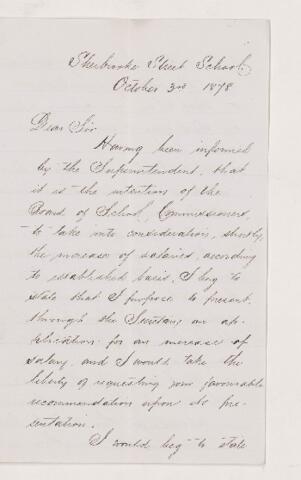 Sherbrooke Street School
October 3rd 1878
Dear Sir
Having been informed
by the Superintendent, that
it is the intention of the
Board of School Commissioners,
to take into consideration, shortly,
the increase of salaries, according
to established basis, I beg to
state that I purpose to present,
through the Secretary an ap-
plication for an increase of
salary and I would take the
liberty of requesting your favourable
recommendation upon its pre-
sentation.
I would beg to state